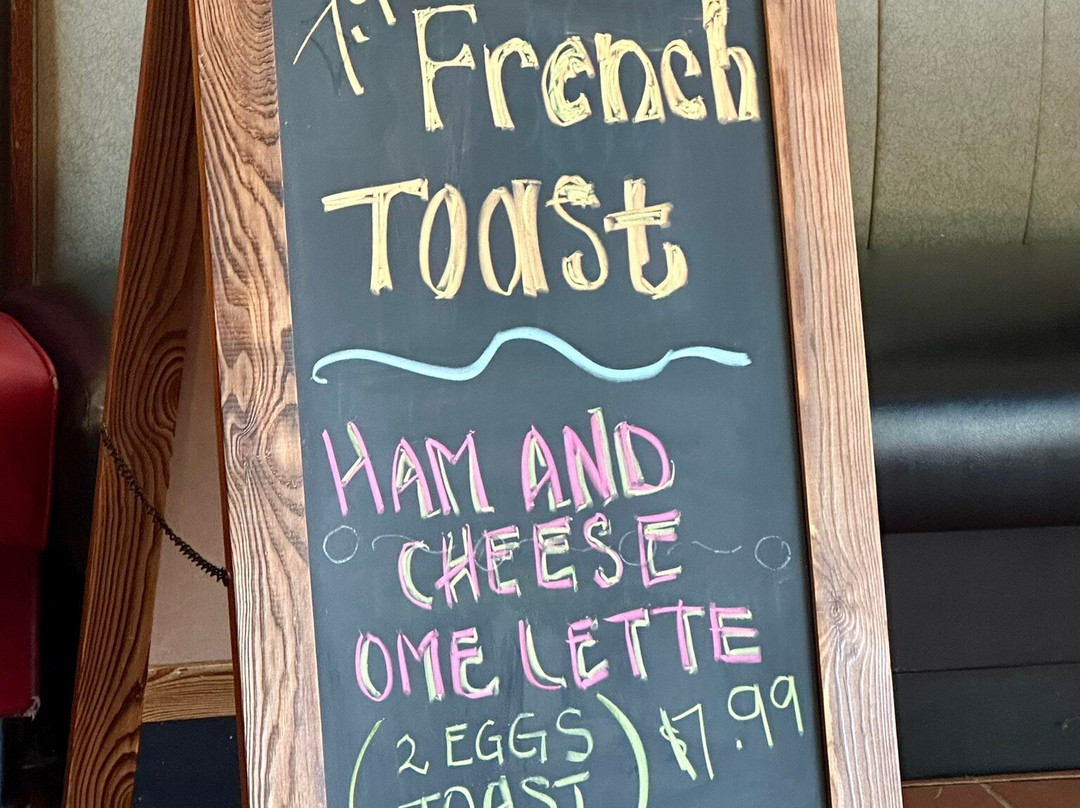 French
Toast
HAM AND
CHEESE
OMELETTE
(2 EGGS
TOAST) $7.99